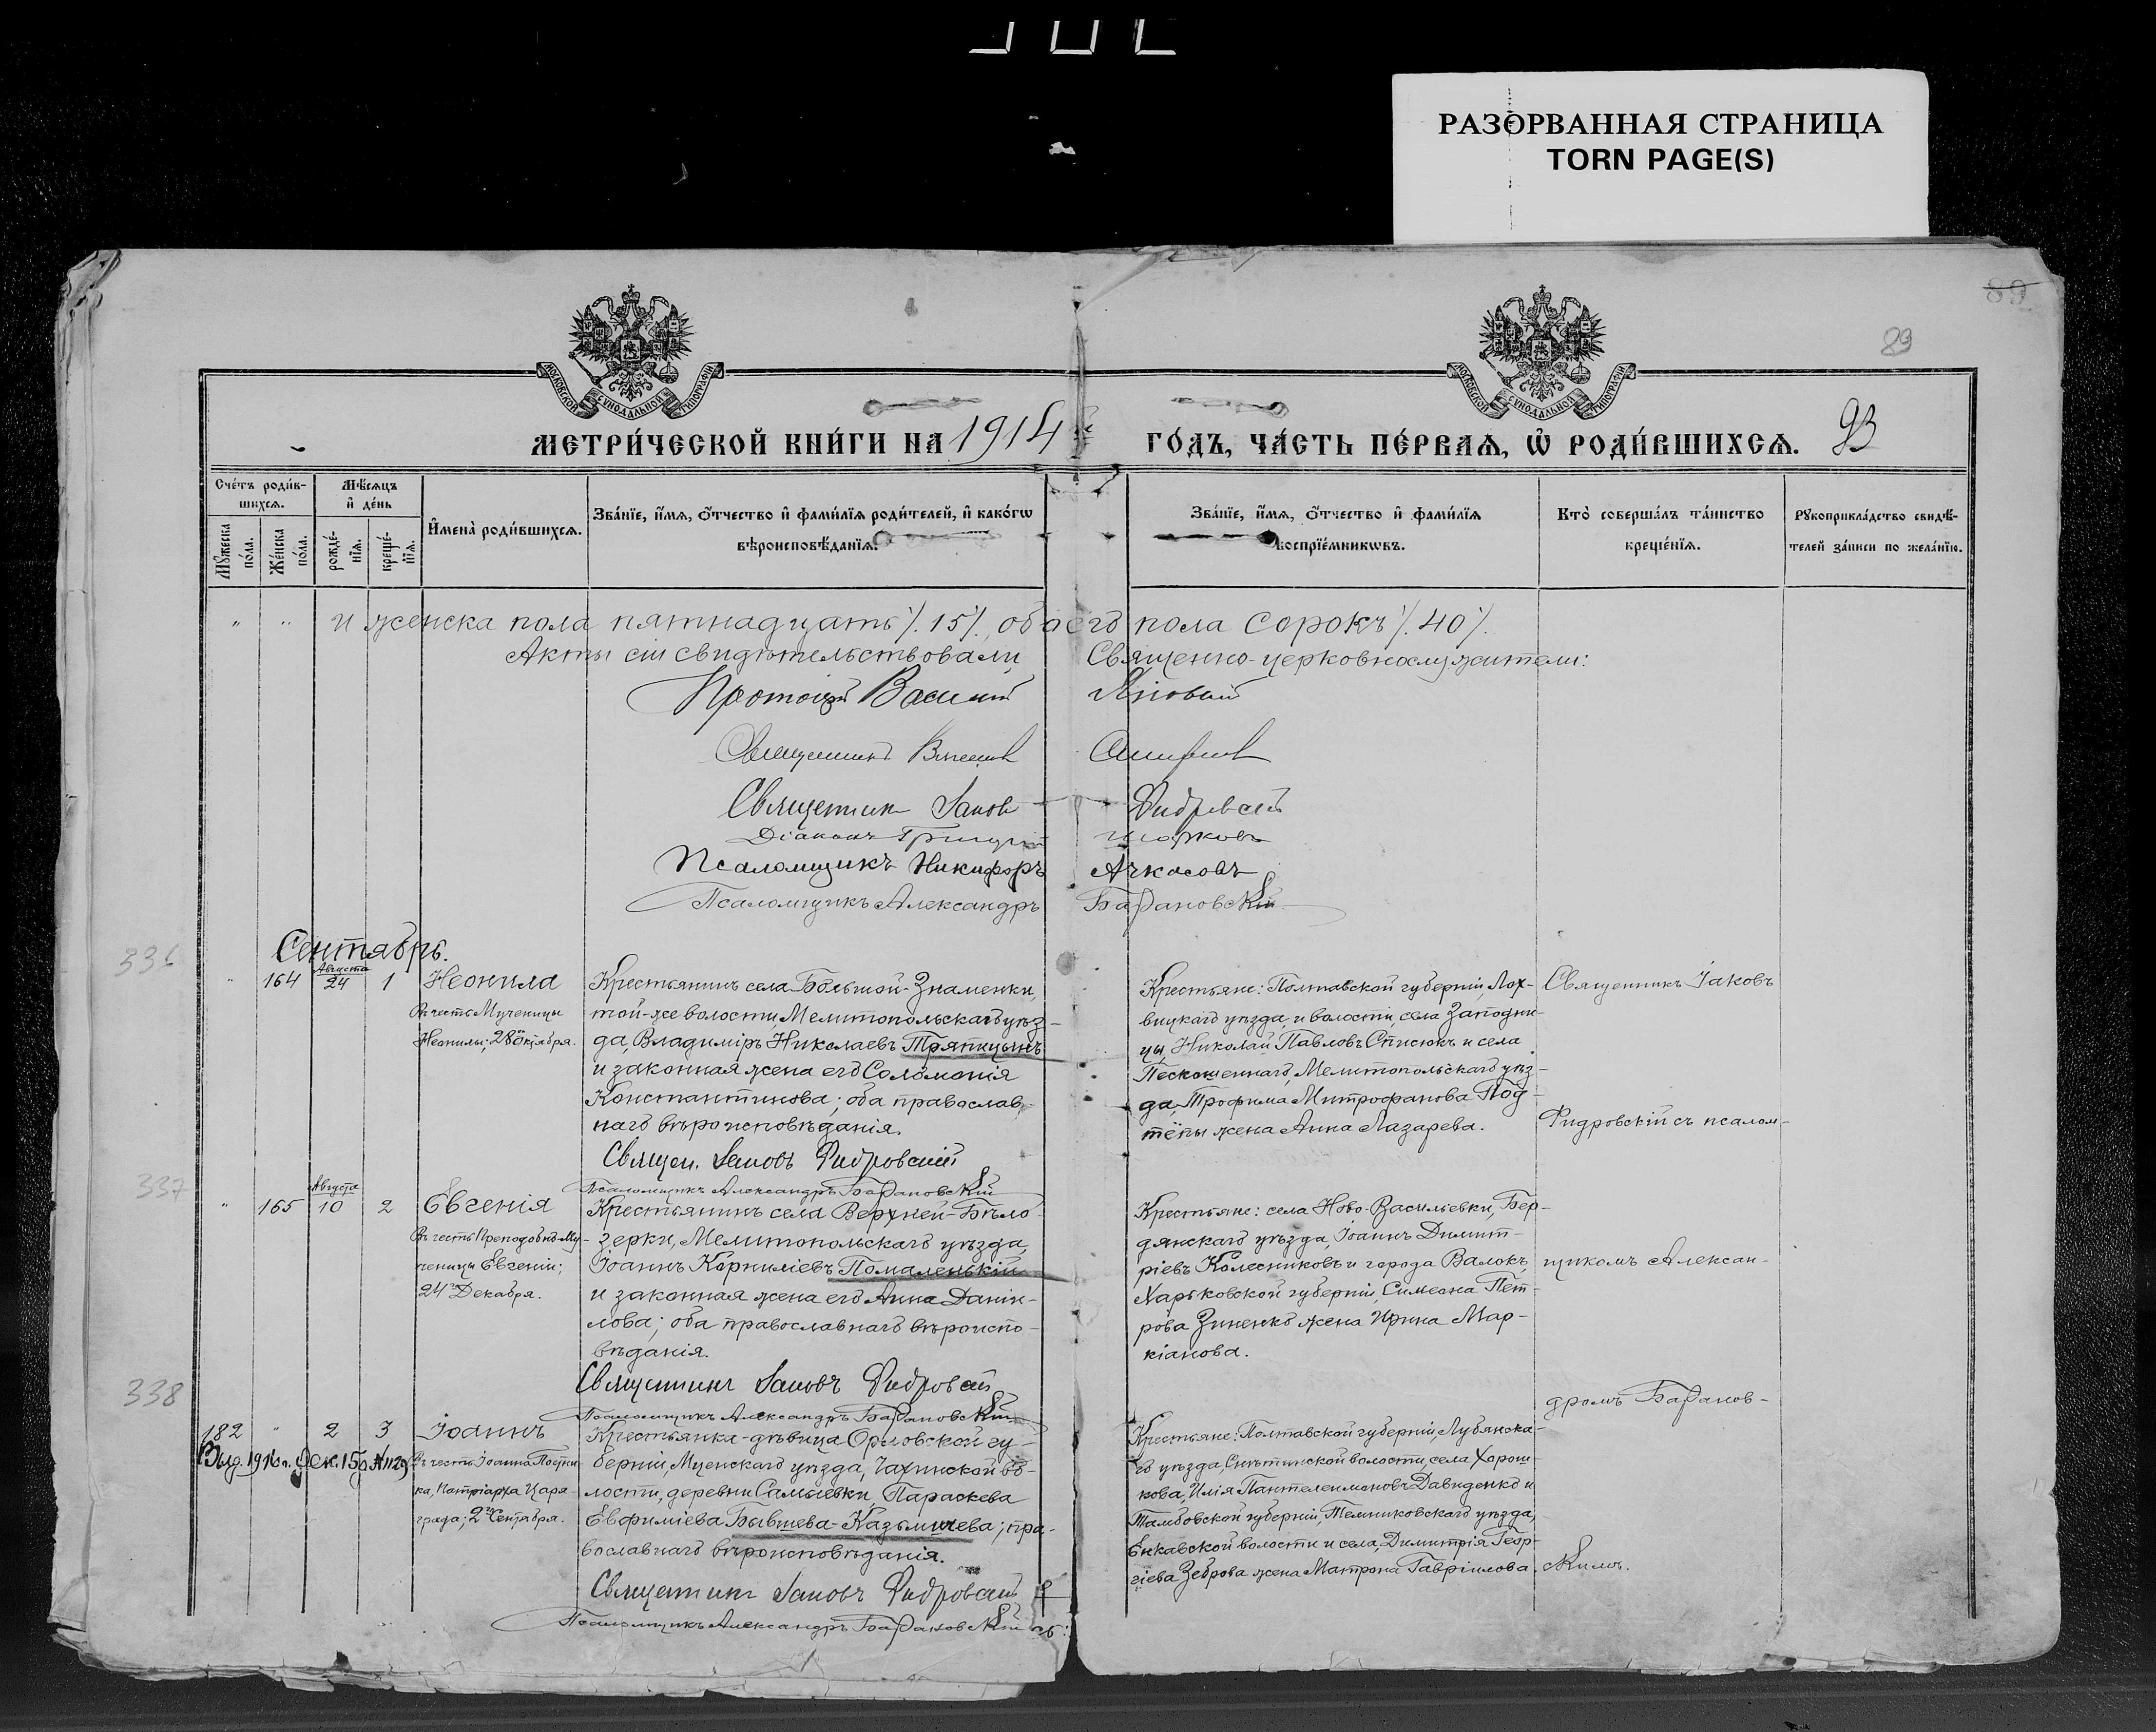 РАЗОРВАННАЯ СТРАНИЦА
TORN PAGE(S)
89
89
МОСКОВСКОЙ СѴНОДАЛЬНОЙ ТИПОГРАФІИ
МОСКОВСКОЙ СѴНОДАЛЬНОЙ ТИПОГРАФІИ
МЕТРИ́ЧЕСКОЙ КНИ́ГИ НА 1914 ГО́ДЪ, ЧА́СТЬ ПЕ́РВАѦ, Ѡ РОДИ́ВШИХСѦ. 93
Сче́тъ роди́в-
шихсѧ.
Мѣ́сѧцъ
и҆ де́нь
Мꙋ́жеска по́ла.
Же́нска по́ла.
рожде́-нїѧ.
креще́-нїѧ.
И҆мена̀ роди́вшихсѧ.
Зва́нїе, и҆́мѧ, ѻ҆́тчество и҆ фами́лїѧ роди́телей, и҆ како́гѡ
вѣроисповѣ́данїѧ.
Зва́нїе, и҆́мѧ, ѻ҆́тчество и҆ фами́лїѧ
воспрїе́мникѡвъ.
Кто̀ соверша́лъ та́инство
креще́нїѧ.
Рꙋкоприкла́дство свидѣ́-
телей за́писи по жела́нїю.
" " и женска пола пятнадцать /.15/., обоего пола сорокъ /.40/.
Акты сіи свидѣтельствовали Священно-церковнослужители:
Протоіерей Василий Яновый
Священникъ
Священник Іаков Фидровскій
Діаконъ Григорій
Псаломщикъ Никифоръ Ачкасовъ
Псаломщикъ Александръ Барановскій
Сентябрь.
336
" 164 Августа 24 1 Неонила
Въ честь Мученицы
Неонилы; 28 Октября.
Крестьянинъ села Большой-Знаменки,
той-же волости Мелитопольскаго уѣз-
да, Владиміръ Николаевъ Тряпицынъ
и законная жена его Соломонія
Константинова; оба православ-
наго вѣроисповѣданія.
Священ. Іаковъ Фидровскій
Псаломщикъ Александръ Барановскій
Крестьяне: Полтавской губерніи, Лох-
вицкаго уѣзда и волости, села
Николай Павловъ и села
Пескошеннаго, Мелитопольскаго уѣз-
да, Трофима Митрофанова Под-
тёпы жена Анна Лазарева.
Священникъ Іаковъ
Фидровскій съ псалом-
337
" 165 Августа 10 2 Евгенія
Въ честь Преподобно-Му-
ченицы Евгеніи;
24 Декабря.
Крестьянинъ села Верхней-Бѣло-
зерки, Мелитопольскаго уѣзда,
Іоаннъ Корниліевъ Помаленькій
и законная жена его Анна Даніи-
лова; оба православнаго вѣроиспо-
вѣданія.
Священникъ Іаковъ Фидровскій
Псаломщикъ Александръ Барановскій
Крестьяне: села Ново-Васильевки, Бер-
дянскаго уѣзда, Іоаннъ Димит-
ріевъ Колесниковъ и города Валокъ,
Харьковской губерніи, Симеона Пет-
рова Зиненко жена Ирина Мар-
кіанова.
щикомъ Алексан-
дромъ Баранов-
338
182 " 2 3 Іоаннъ
Выд. 1916 г. Дек. 15 д № 1129
Въ честь Іоанна Постни-
ка, Патріарха Царе-
града; 2 Сентября.
Крестьянка-дѣвица Орловской гу-
берніи, Мценскаго уѣзда, во-
лости, деревни Параскева
Евфиміева Бывшева-Казьмичева; пра-
вославнаго вѣроисповѣданія.
Священникъ Іаковъ Фидровскій
Псаломщикъ Александръ Барановскій
Крестьяне: Полтавской губерніи, Лубенска-
го уѣзда, Снѣтинской волости, села Хорош-
кова, Илія Пантелеимоновъ Давиденко и
Тамбовской губерніи, Темниковскаго уѣзда,
волости и села, Димитрія Геор-
гіева жена Матрона Гавріилова.
скимъ.